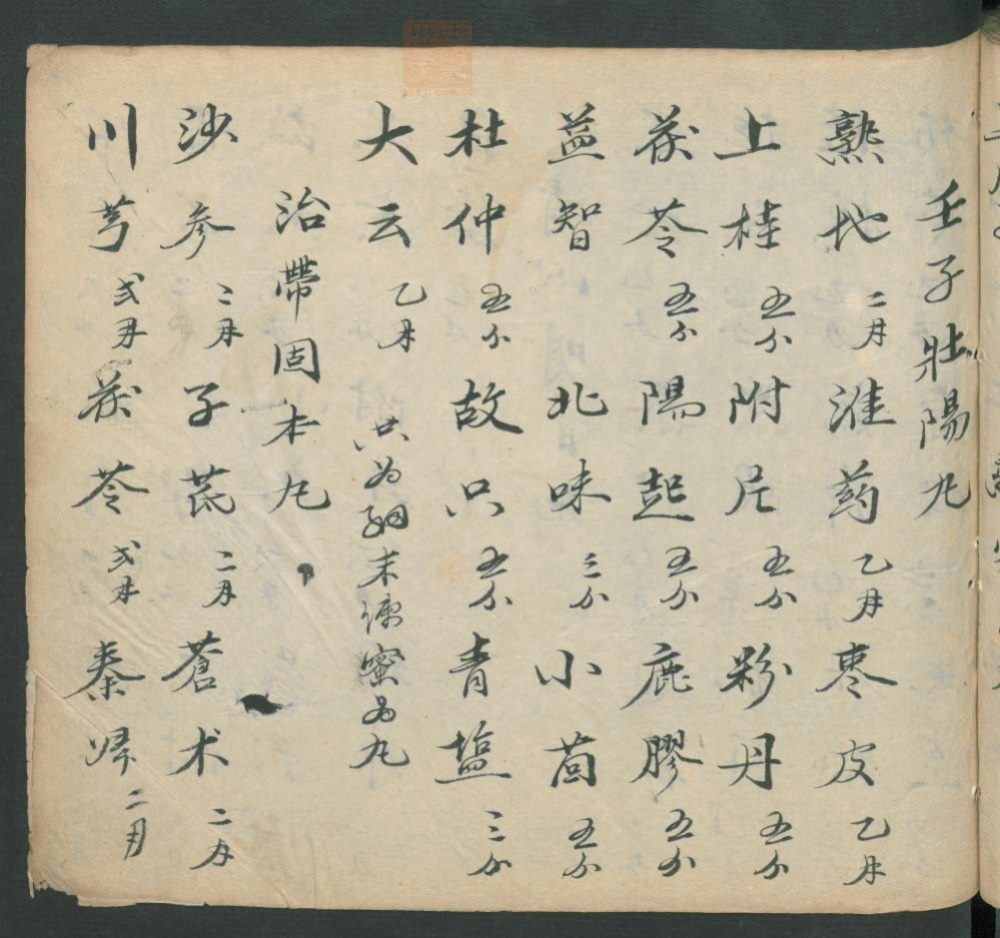 壬子壯陽丸
熟地 二月 淮药 乙月 枣皮 乙月
上桂 五分 附片 五分 粉丹 五分
茯苓 五分 陽起 五分 鹿膠 五分
益智 北味 三分 小茴 五分
杜仲 五分 故只 五分 青盐 三分
大云 乙月 共为細末 煉蜜为丸
治帶固本丸
沙参 二月 子芪 二月 蒼术 二月
川芎 弍月 茯苓 弍月 秦歸 二月